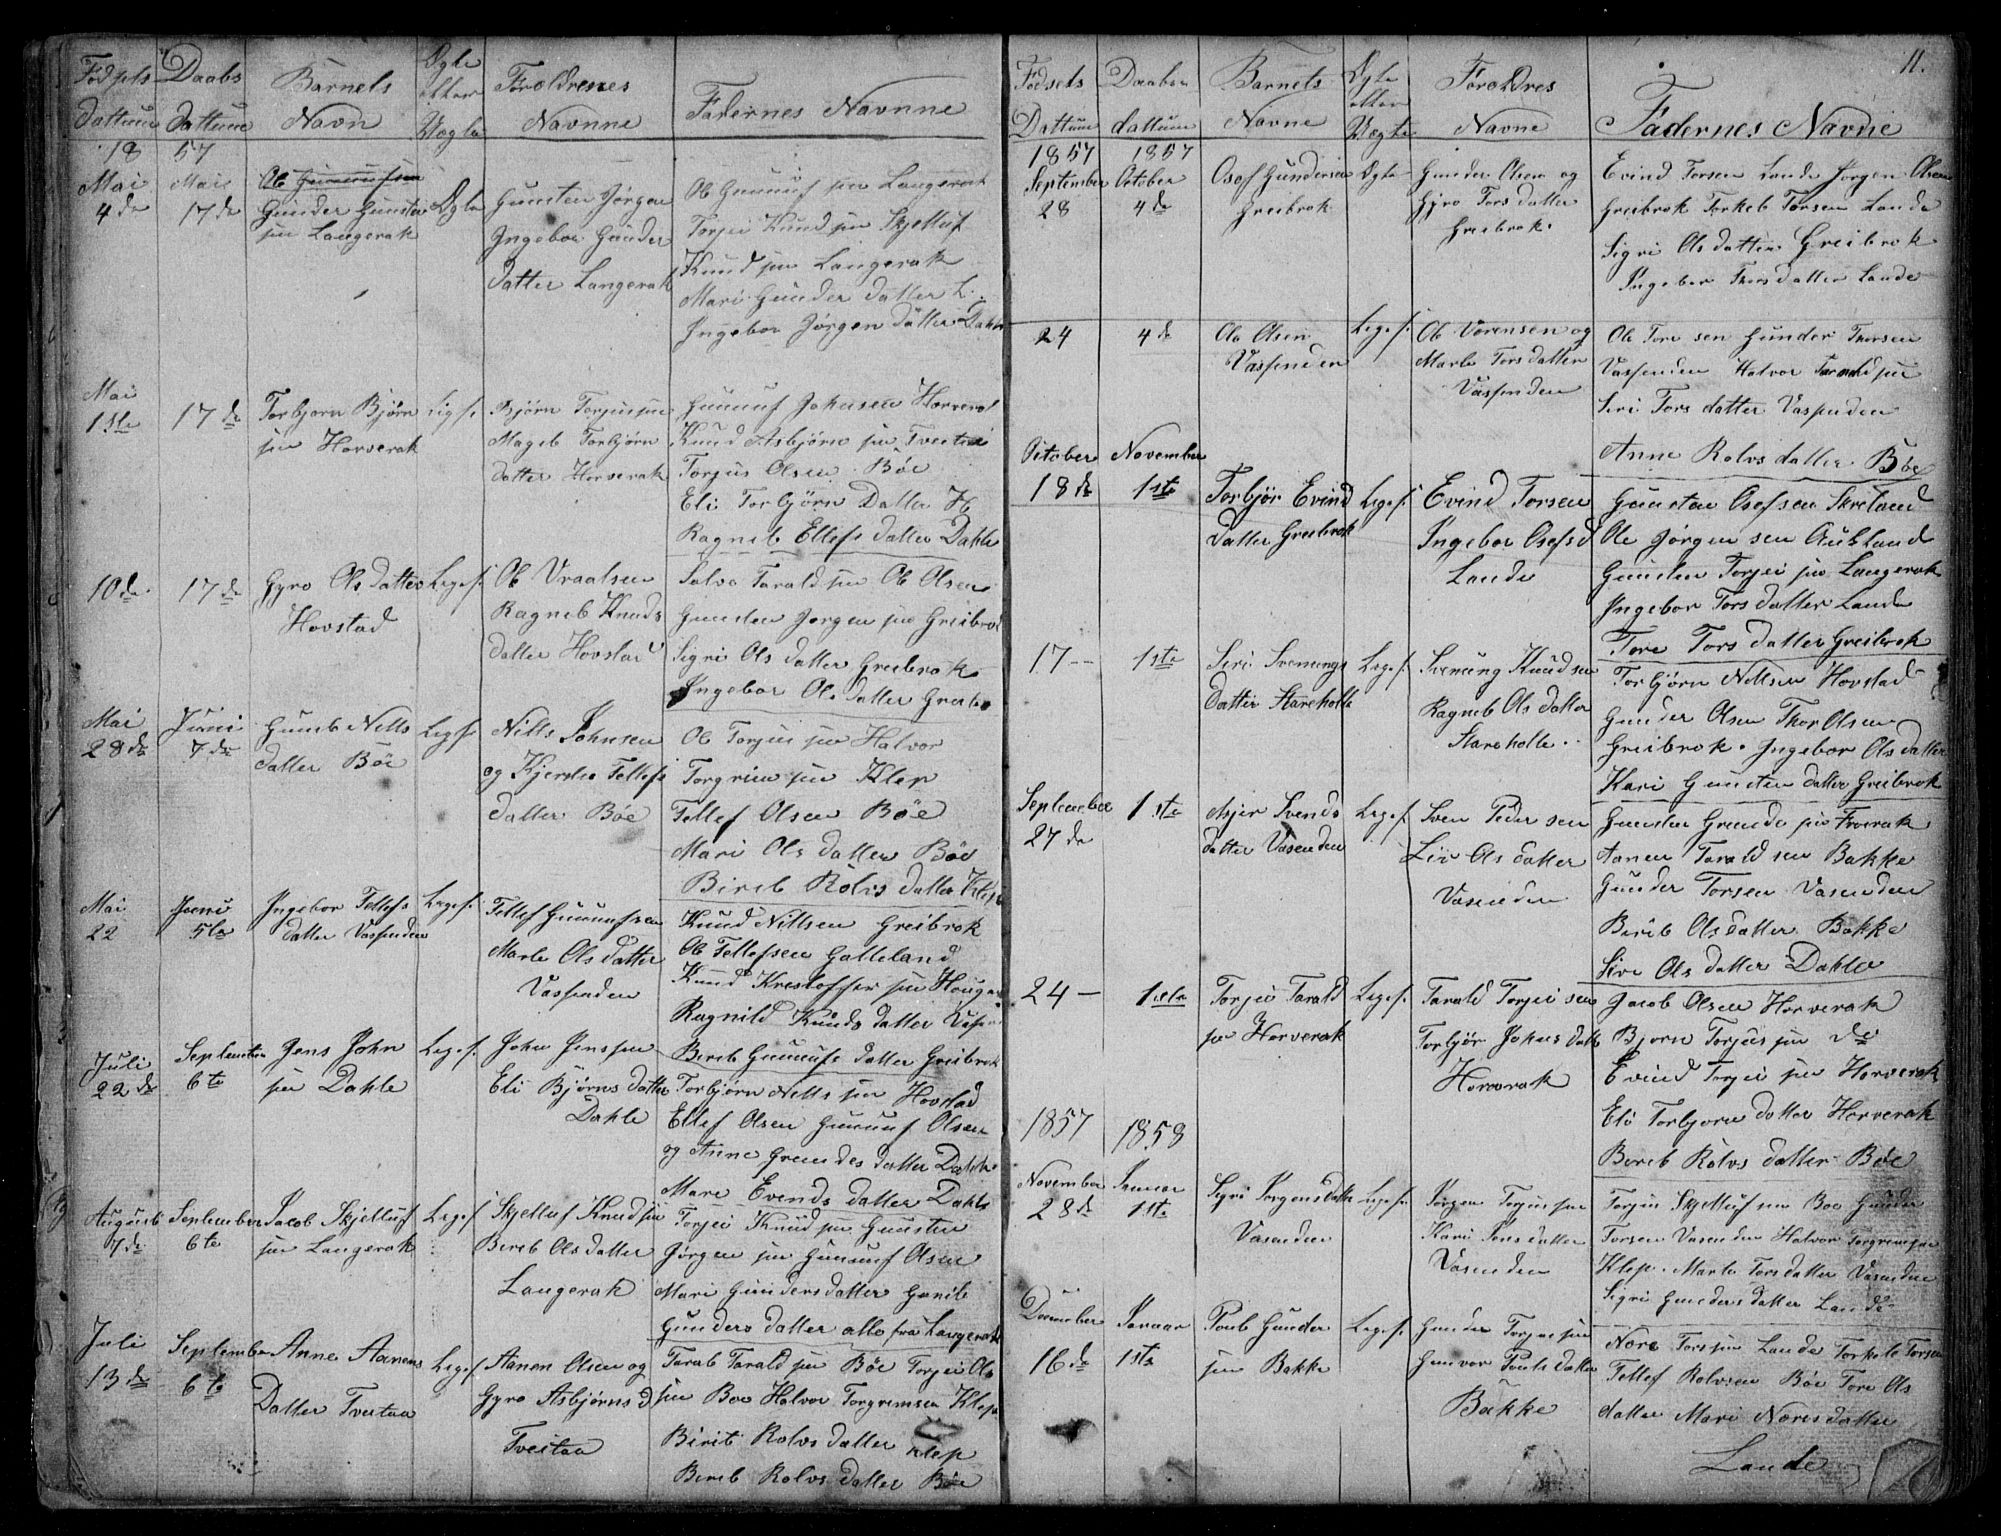 Fødsels
Daabs
Barnets
Ægte
Foroldrenes
Fadernes Navnne
dattum
dattum
Navn
eller
Uægte
Navnne
18 57
Mai
4 de
Mai
17 de
Gunder Gunsten
sen Langerak
Ægte
Gunsten Jørgen
Ingebor Gunder
datter Langerak
Ole Gunnuf sen Langerak
Torjei Knud sen Skjelluf
Knud sen Langerak
Mari Gunder datter L.
Ingebor Jørgen datter Dahle
Mai
1ste
17 de
Torbjørn Bjørn
sen Horverak
Lige f.
Bjørn Torjussen
Mageb Torbjørn
datter Horverak
Gunnuf Johnsen Horverak
Knud Asbjørn sen Tveitaa
Torjus Olsen Bøe
Eli Torbjørn Datter H
Ragneb Ellefs datter Dahle
10 de
17 de
Gyro Ols datter
Hovstad
Lige f.
Ole Vraalsen
Ragneb Knuds
datter Hovstad
Salve Tarald sen Ole Olsen
Gunsten Jørgen sen Greibrok
Sigri Ols datter Greibrok
Ingebor Ols datter Greibro
Mai
28 de
Juni
7 de
Guneb Nells
datter Bøe
Lige f.
Nills Johnsen
og Kjerstie Tellefs
datter Bøe
Ole Torjus sen Halvor
Torgrim sen Klep
Tellef Olsen Bøe
Mari Ols datter Bøe
Bireb Rolvs datter Klep
Mai
22
Juni
5te
Ingebor Tellefs
datter Vaspenden
Lige f.
Tellef Gunnufsen
Marte Ols datter
Vaspenden
Knud Nillsen Greibrok
Ole Tellefsen Galteland
Knud Krestoffer sen Hougen
Ragnild Knuds datter
Bireb Gunnufs datter Greibrok
Juli
22 de
September
6te
Jens John
sen Dahle
Lige f.
John Jenssen
Eli Bjørns datter
Dahle
Torbjørn Nills sen Hovstad
Ellef Olsen Gunnuf Olsen
og Anne Greundes datter Dahle
Mari Evends datter Dahle
August
7 de
September
6te
Jacob Skjelluf
sen Langerak
Lige f.
Skjelluf Knudsen
Bireb Ols datter
Langerak
Torjei Knud sen Gunsten
Jørgen sen Gunnuf Olsen
Mari Gunders datter Gunile
Gunders datter alle fra Langerak
Juli
13 de
September
6te
Anne Aanens
Datter Tveitaa
Lige f.
Aanen Olsen og
Gyro Asbjørns D
Tveitaa
Tarald sen Bøe Torjei Ols
sen Boe Halvor Torgremsen Klep
Birit Rolvs datter Klep
Bereb Rolvs datter Bøe
11.
Fødsels
Daaben
Barnets
Ægte
Foroldres
Fadernes Navne
Dattum
dattum
Navne
eller
Uægte
Navne
1857
1857
September
28
October
4de
Osof Gundersen
Greibrok
Ægte
Gunder Olsen og
Gyro Tors datter
Greibrok
Evind Torsen Lande Jørgen Olsen
Greibrok Torkeb Torsen Lande
Sigri Ols datter Greibrok
Ingebor Thors datter Lande
24
4de
Ole Olsen
Vaspenden
Lige f.
Ole Vorensen og
Marte Tors datter
Vaspenden
Ole Tore sen Gunder Thorsen
Vaspenden Halvor Tarald sen
Siri Tors datter Vaspenden
Anne Rolvs datter Bøe
October
18 de
November
1ste
Torbjør Evind
datter Greibrok
Lige f.
Evind Torsen
Ingebor Osofs d
Lande
Gunsten Osofsen Skreland
Ole Jørgen sen Aukland
Gunsten Torjei sen Langerak
Ingebor Tors datter Lande
Tore Tors datter Greibrok
17 --
1ste
Siri Svenungs
datter Stareholte
Lige f.
Svenung Knudsen
Ragneb Ols datter
Stareholte
Torbjørn Nillsen Hovstad
Gunder Olsen Thor Olsen
Greibrok. Ingebor Ols datter
Kari Gunsten datter Greibrok
September
27 de
1ste
Asjer Svends
datter Vasenden
Lige f.
Sven Peder sen
Liv Ols datter
Vasenden
Gunsten Greunde sen Froerak
Aanen Tarald sen Bakke
Gunder Torsen Vasenden
Bireb Ols datter Bakke
Sire Ols datter Dahle
24 —
1ste
Torjus Tarald
sen Horverak
Lige f.
Tarald Torjei sen
Torbjør Johns datter
Horverak
Jacob Olsen Horverak
Bjørn Torjus sen de
Evind Torjei sen Horverak
Eli Torbjorn datter Horverak
Bireb Rolvs datter Bøe
1857
1858
November
28 de
Januar
1ste
Sigri Jorgens datter
Vasenden
Lige f.
Jorgen Torjussen
Kari Jons datter
Vasenden
Torjus Skjelluf sen Boe Gunder
Torsen Vasenden Halvor Torgremsen
Klep. Marte Tors datter Vasenden
Sigri Gunders datter Lande
December
16 de
Januar
1ste
Poul Gunder
sen Bakke
Lige f.
Gunder Torjussen
Gunvor Pouls datter
Bakke
Nore Torssen Lande Torkild Torsen
Tellef Rolvsen Bøe Tore Ols
datter Mari Nores datter
Lande